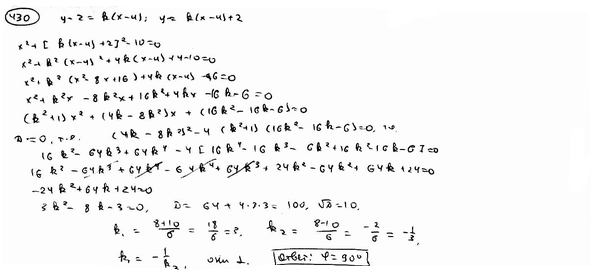 430 y-2 = k(x-4); y = k(x-4)+2
x²+[k(x-4)+2]²-10=0
x²+k²(x-4)²+4k(x-4)+4-10=0
x²+k²(x²-8x+16)+4k(x-4)-6=0
x²+k²x-8k²x+16k²+4kx-16k-6=0
(k²+1)x²+(4k-8k²)x+(16k²-16k-6)=0
D=0, т.е. (4k-8k²)²-4(k²+1)(16k²-16k-6)=0, т.е.
16k²-64k³+64k⁴-4[16k⁴-16k³-6k²+16k²-16k-6]=0
16k²-64k³+64k⁴-64k⁴+64k³+24k²-64k²+64k+24=0
-24k²+64k+24=0
3k²-8k-3=0, D=64+4·3·3=100, √D=10.
k₁ = (8+10)/6 = 18/6 = 3. k₂ = (8-10)/6 = -2/6 = -1/3.
k₁ = -1/k₂, они ⊥. Ответ: φ=90°